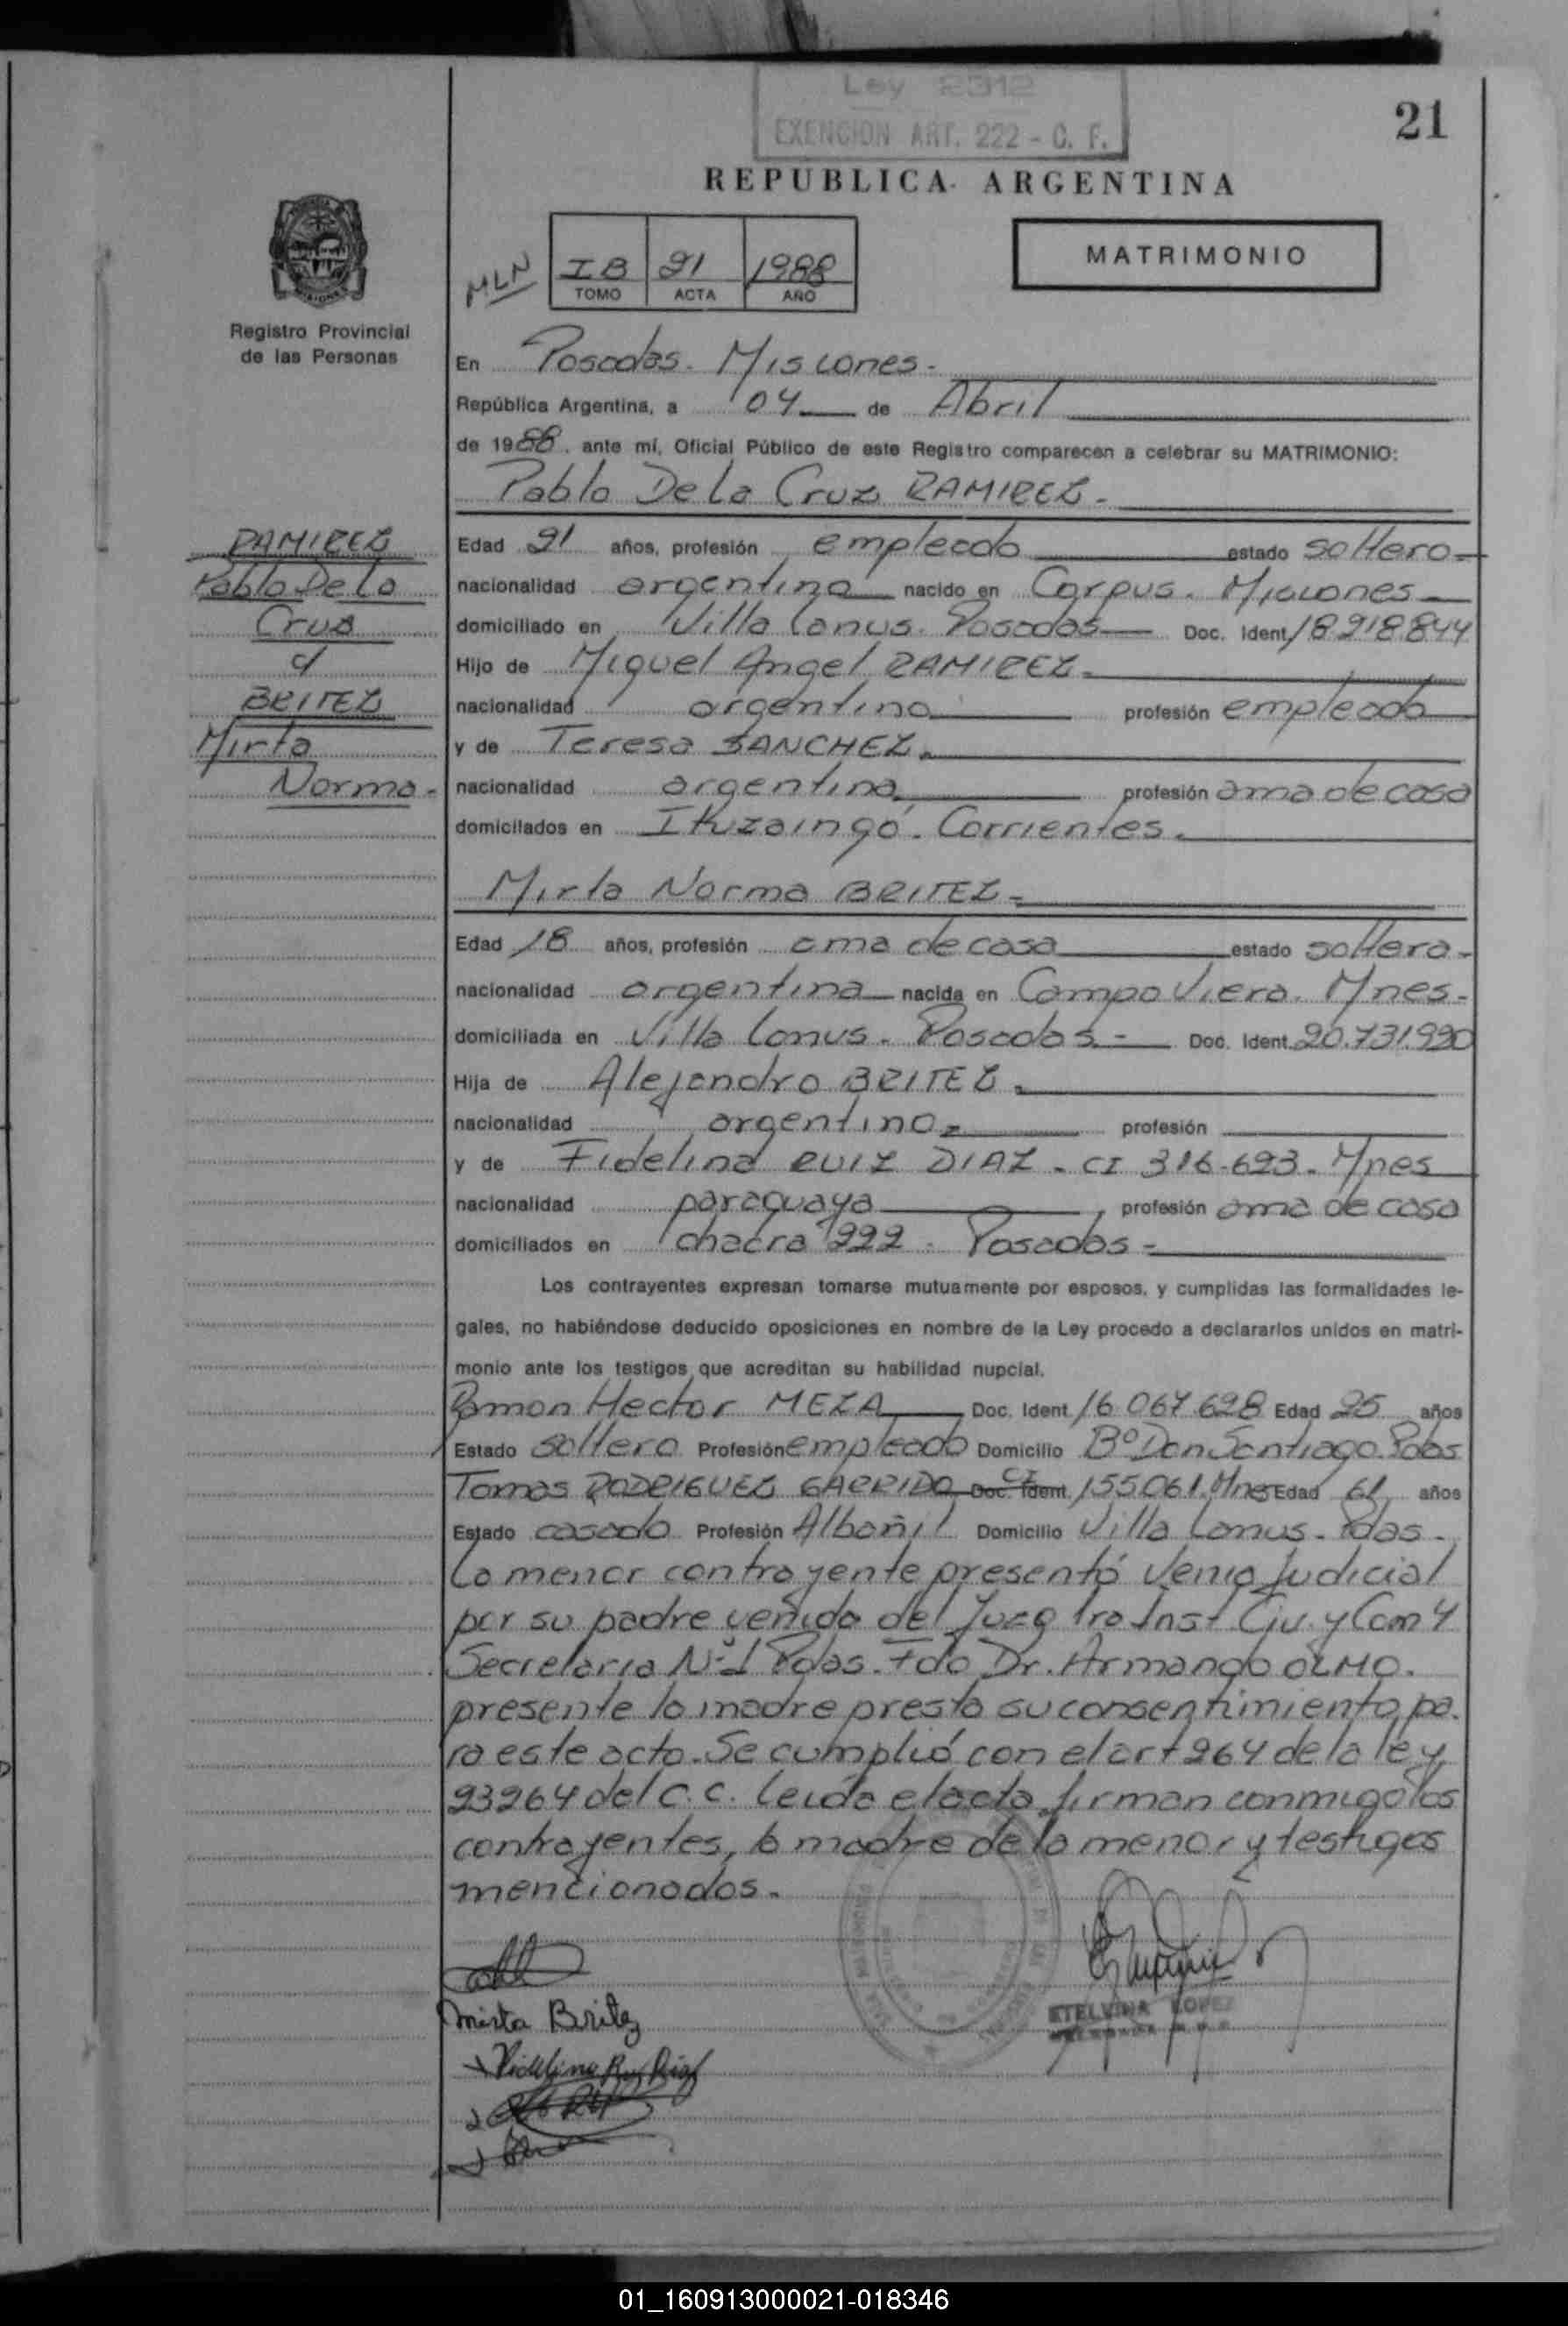 Ley 2312
EXENCION ART. 222 - C. F.
21
REPUBLICA ARGENTINA
MLN
I B 21 1988
TOMO ACTA AÑO
MATRIMONIO
Registro Provincial
de las Personas
En Posadas. Misiones.
República Argentina, a 04 de Abril
de 1988. ante mí, Oficial Público de este Registro comparecen a celebrar su MATRIMONIO:
Pablo De La Cruz RAMIREZ.
RAMIREZ
Pablo De La
Cruz
c/
BRITEZ
Mirta
Norma.
Edad 21 años, profesión empleado estado soltero
nacionalidad argentina nacido en Corpus. Misiones
domiciliado en Villa Lanus. Posadas Doc. Ident. 18.918.844
Hijo de Miguel Angel RAMIREZ.
nacionalidad argentino profesión empleado
y de Teresa SANCHEZ.
nacionalidad argentina profesión ama de casa
domiciliados en Ituzaingó. Corrientes.
Mirta Norma BRITEZ
Edad 18 años, profesión ama de casa estado soltera
nacionalidad argentina nacida en Campo Viera. Mnes
domiciliada en Villa Lanus. Posadas. Doc. Ident. 20.731.990
Hija de Alejandro BRITEZ.
nacionalidad argentino profesión
y de Fidelina RUIZ DIAZ. CI 316.693. Mnes
nacionalidad paraguaya, profesión ama de casa
domiciliados en chacra 222. Posadas
Los contrayentes expresan tomarse mutuamente por esposos, y cumplidas las formalidades le-
gales, no habiéndose deducido oposiciones en nombre de la Ley procedo a declararlos unidos en matri-
monio ante los testigos que acreditan su habilidad nupcial.
Ramon Hector MEZA Doc. Ident. 16.067.628 Edad 25 años
Estado soltero Profesión empleado Domicilio Bº Don Santiago. Pdas
Tomas RODRIGUEZ GARRIDO Doc. Ident. CI 155.061. Mnes Edad 61 años
Estado casado Profesión Albañil Domicilio Villa Lanus. Pdas.
La menor contrayente presentó venia judicial
por su padre venida del Juzg 1ro Inst Civ. y Com 4
Secretaria Nº 1 Pdas. Fdo Dr. Armando OLMO.
presente la madre presta su consentimiento pa.
ra este acto. Se cumplió con el art 264 de la ley
23264 del C. C. Leida el acta firman conmigo los
contrayentes, la madre de la menor y testigos
mencionados.
Mirta Britez
Fidelina Ruiz Diaz
ETELVINA LOPEZ
01_160913000021-018346